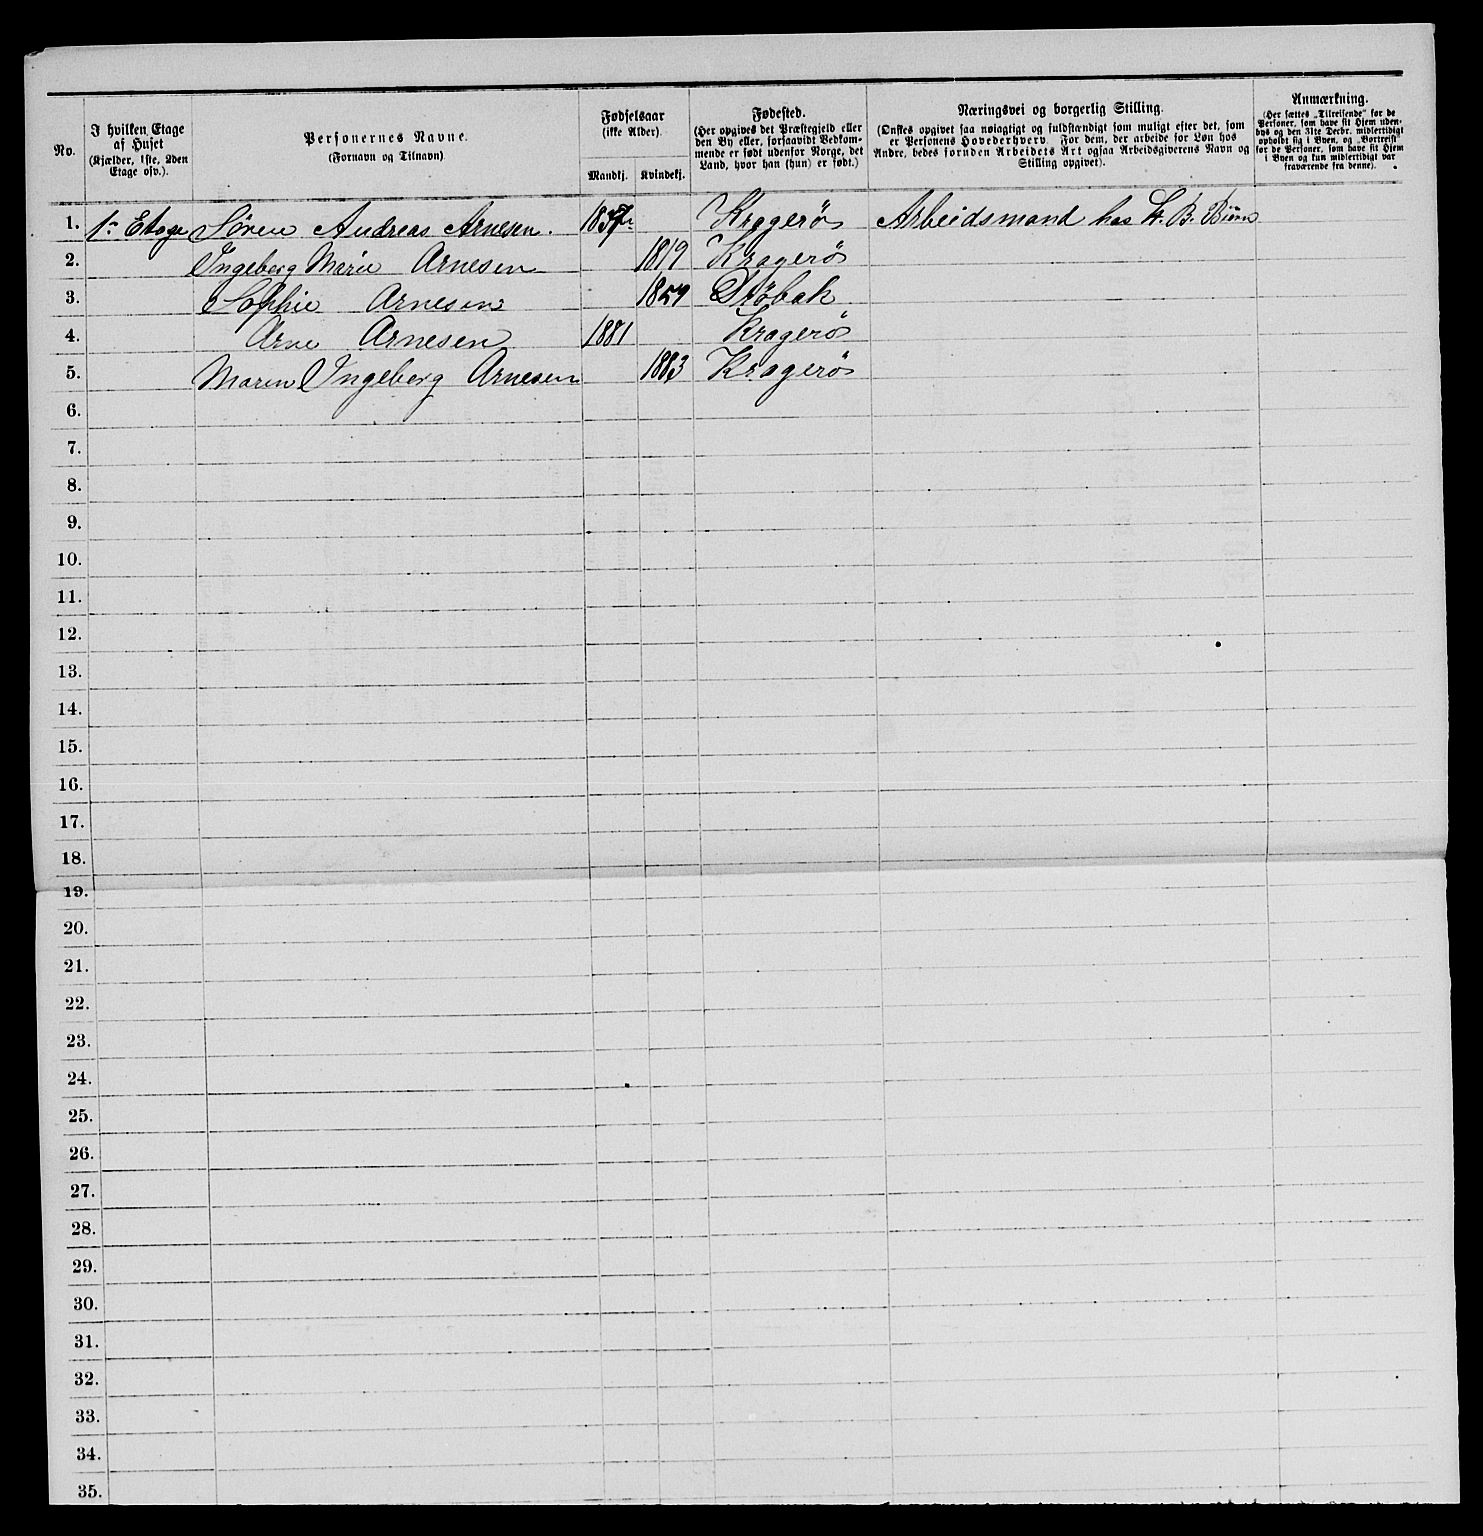 No.
I hvilken Etage
af Huset
(Kjælder, 1ste, 2den
Etage osv.).
Personernes Navne.
(Fornavn og Tilnavn)
Fødselsaar
(ikke Alder).
Mandkj. Kvindekj.
Fødested.
(Her opgives det Præstegjeld eller
den By eller, forsaavidt Vedkom-
mende er født udenfor Norge, det
Land, hvor han (hun) er født.)
Næringsvei og borgerlig Stilling.
(Ønskes opgivet saa nøiagtigt og fuldstændigt som muligt efter det, som
er Personens Hovederhverv. For dem, der arbeide for Løn hos
Andre, bedes foruden Arbeidets Art ogsaa Arbeidsgiverens Navn og
Stilling opgivet).
Anmærkning.
(Her sættes „Tilreisende“ for de
Personer, som have sit Hjem uden-
bys og den 31te Decbr. midlertidigt
opholdt sig i Byen, og „Bortreist“
for de Personer, som have sit Hjem
i Byen og kun midlertidigt var
fraværende fra denne).
1. 1ste Etage Søren Andreas Arnesen. Kragerø Arbeidsmand hos B.
2. Ingeborg Marie Arnesen 1819 Kragerø
3. Sophie Arnesen 1859 Drøbak
4. Arne Arnesen 1881 Kragerø
5. Maren Ingeborg Arnesen 1883 Kragerø
6.
7.
8.
9.
10.
11.
12.
13.
14.
15.
16.
17.
18.
19.
20.
21.
22.
23.
24.
25.
26.
27.
28.
29.
30.
31.
32.
33.
34.
35.